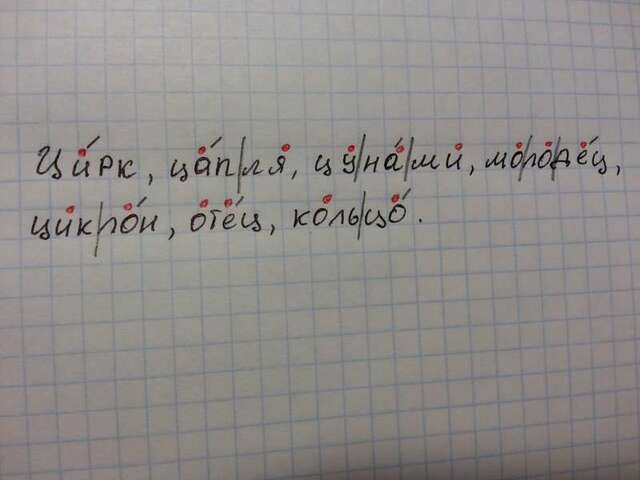 Ци́рк, ца́п/ля, цу/на́/ми, мо/ло/де́ц,
цик/ло́н, оте́ц, коль/цо́.